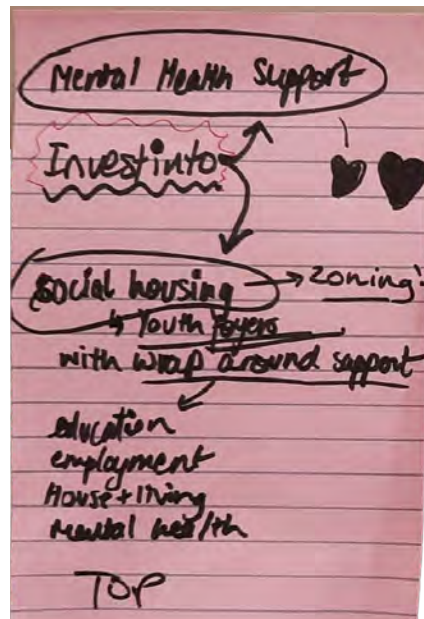 Mental Health Support
Invest into
social housing → zoning
↳ Youth Foyers
with wrap around support
education
employment
House + living
mental health
TOP